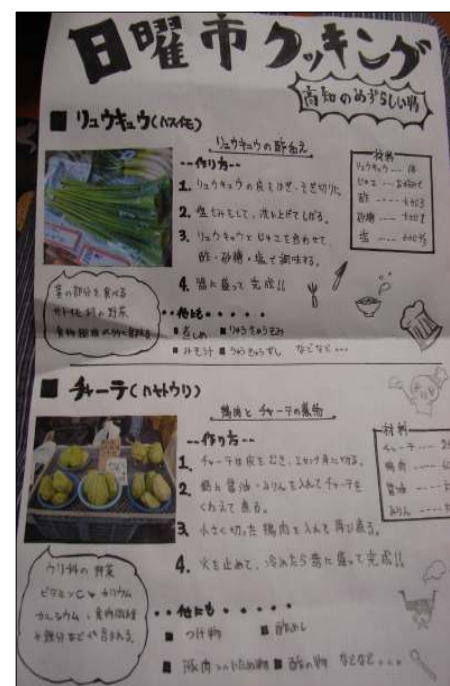 日曜市クッキング
高知のめずらしい物
■ リュウキュウ(ハスイモ)
リュウキュウの酢和え
--作り方--
1. リュウキュウの皮をはぎ、そぎ切りに。
2. 塩もみをして、洗い上げてしぼる。
3. リュウキュウとジャコを合わせて、
酢・砂糖・塩で調味する。
4. 器に盛って完成!!
材料
リュウキュウ
ジャコ
酢
砂糖
塩
茎の部分を食べる
サトイモ科の野菜
食物繊維
・・他にも・・・・・
■ みそ汁 ■ りゅうきゅうずし などなど・・・
■ チャーテ(ハヤトウリ)
鶏肉とチャーテの煮物
--作り方--
1. チャーテは皮をむき、
2. 鍋に醤油・みりんを入れてチャーテを
くわえて煮る。
3. 小さく切った鶏肉を入れて再び煮る。
4. 火を止めて、冷めたら器に盛って完成!!
材料
チャーテ
鶏肉
醤油
みりん
ウリ科の野菜
ビタミンCやカリウム
カルシウム、食物繊維
や鉄分などが含まれる。
・・他にも・・・・・
■ つけ物 ■ 酢めし
■ 豚肉といため物 ■ 酢の物 などなど・・・